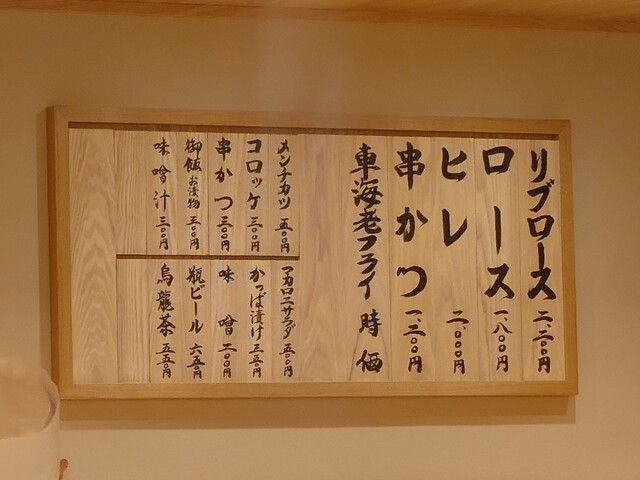 リブロース 二、二〇〇円
ロース 一、八〇〇円
ヒレ 二、〇〇〇円
串かつ 一、二〇〇円
車海老フライ 時価
メンチカツ 五〇〇円
コロッケ 三〇〇円
串かつ 三〇〇円
御飯 お漬物 五〇〇円
味噌汁 三〇〇円
マカロニサラダ 五〇〇円
かっぱ漬け 三五〇円
味噌 二〇〇円
瓶ビール 六五〇円
烏龍茶 五五〇円